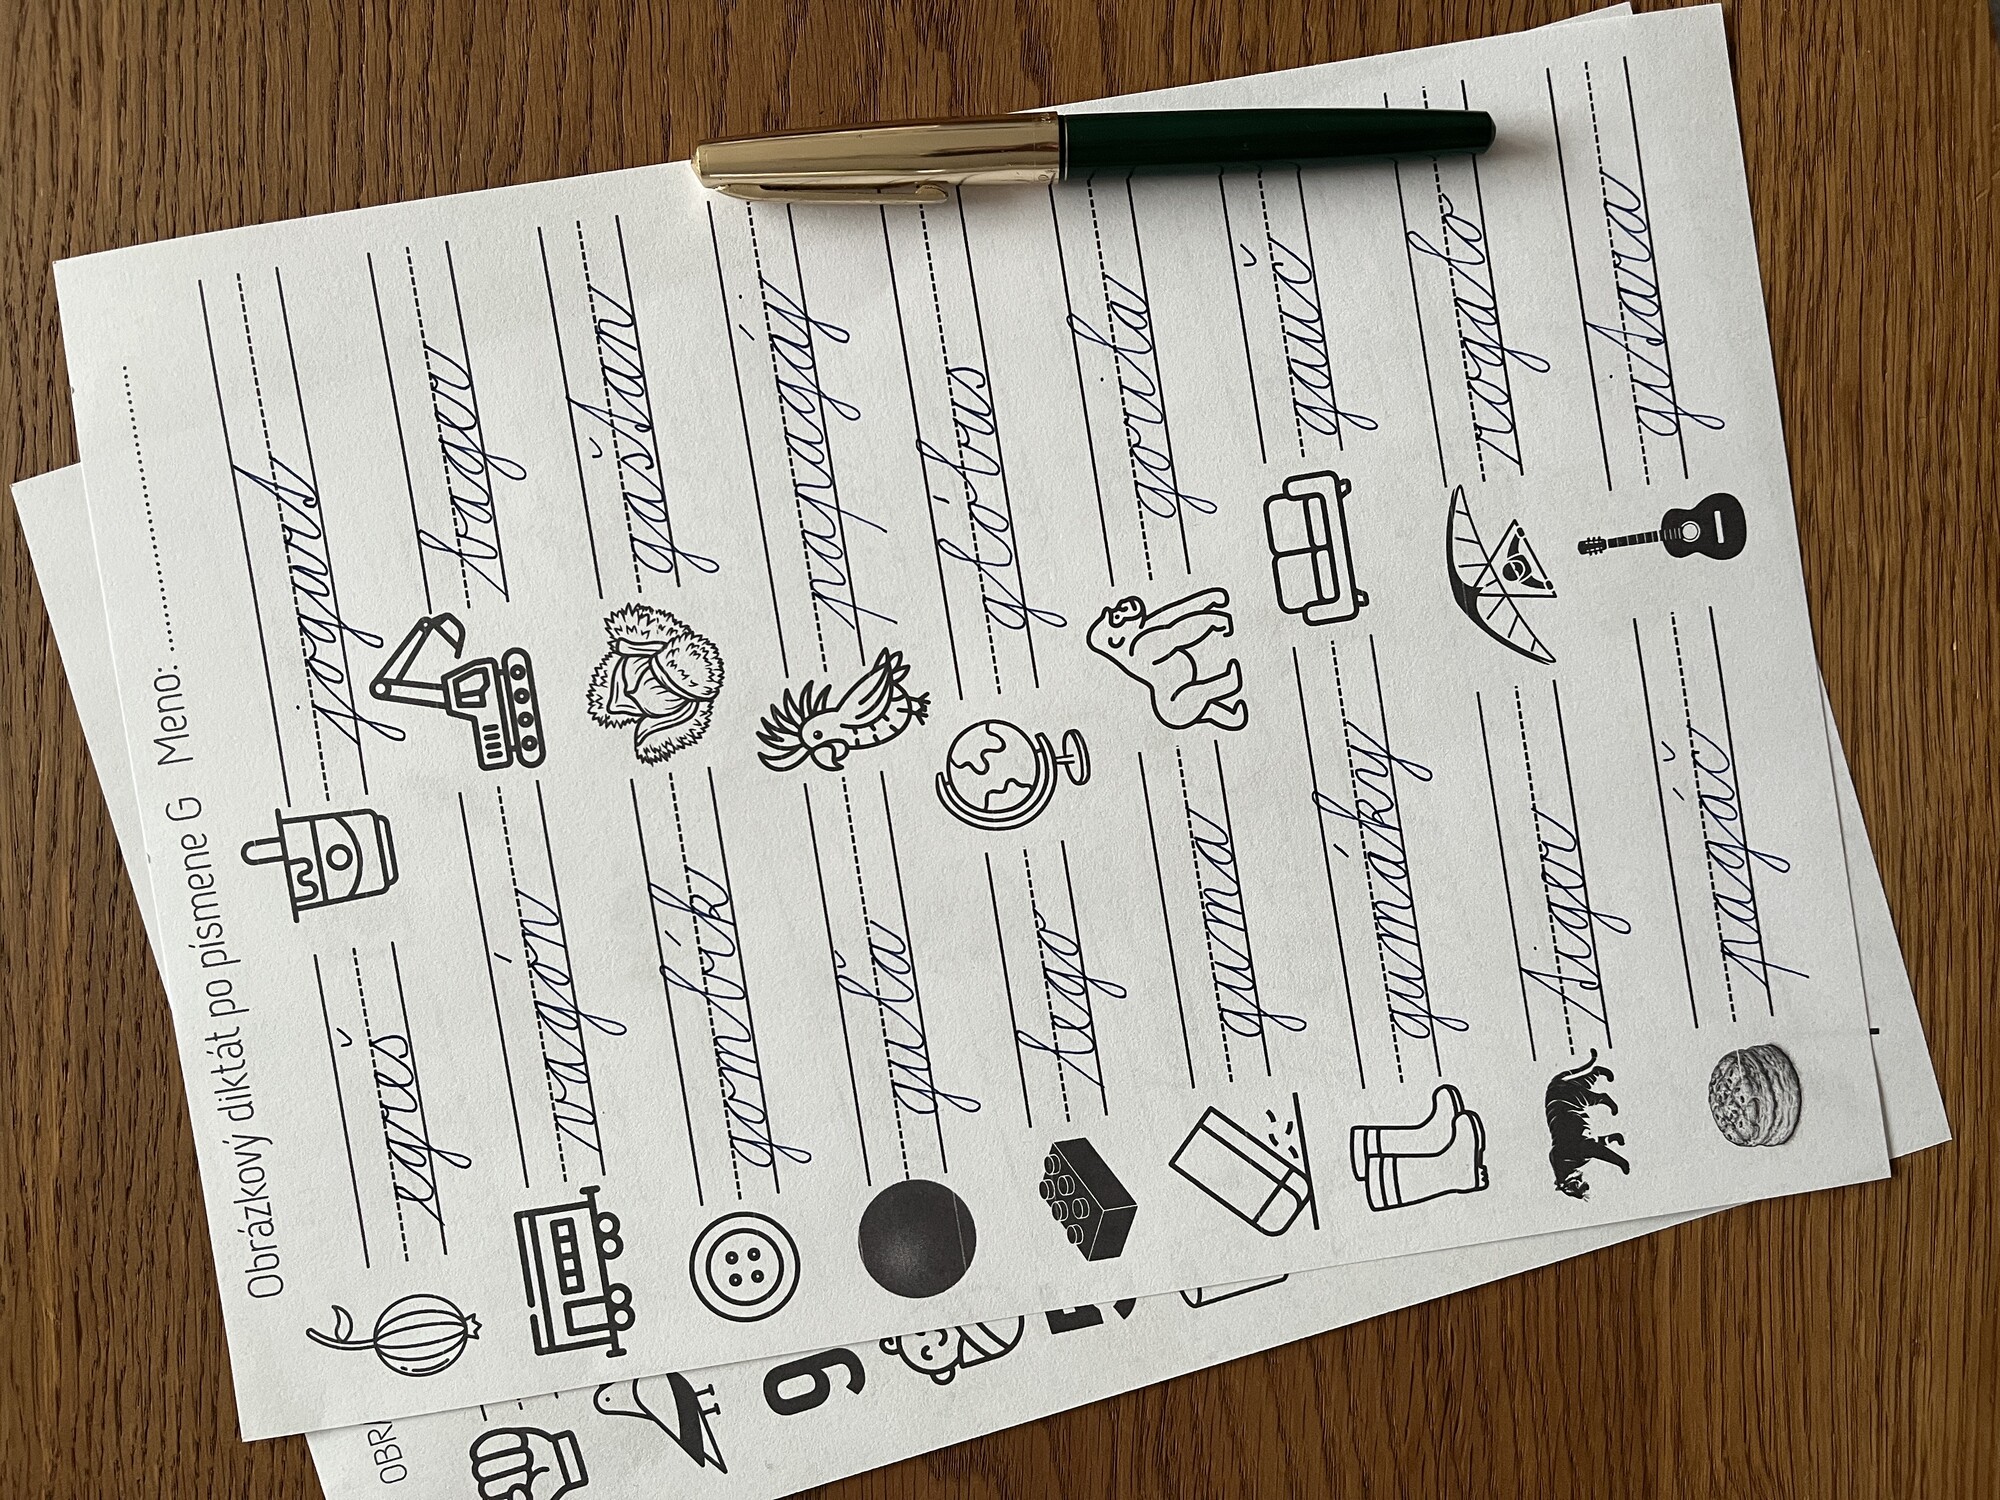 Obrázkový diktát po písmene G Meno:
egreš jogurt
vagón bager
gombík gaštan
guľa papagáj
lego glóbus
guma gorila
gumáky gauč
tiger rogalo
pagáč gitara
OBR
9